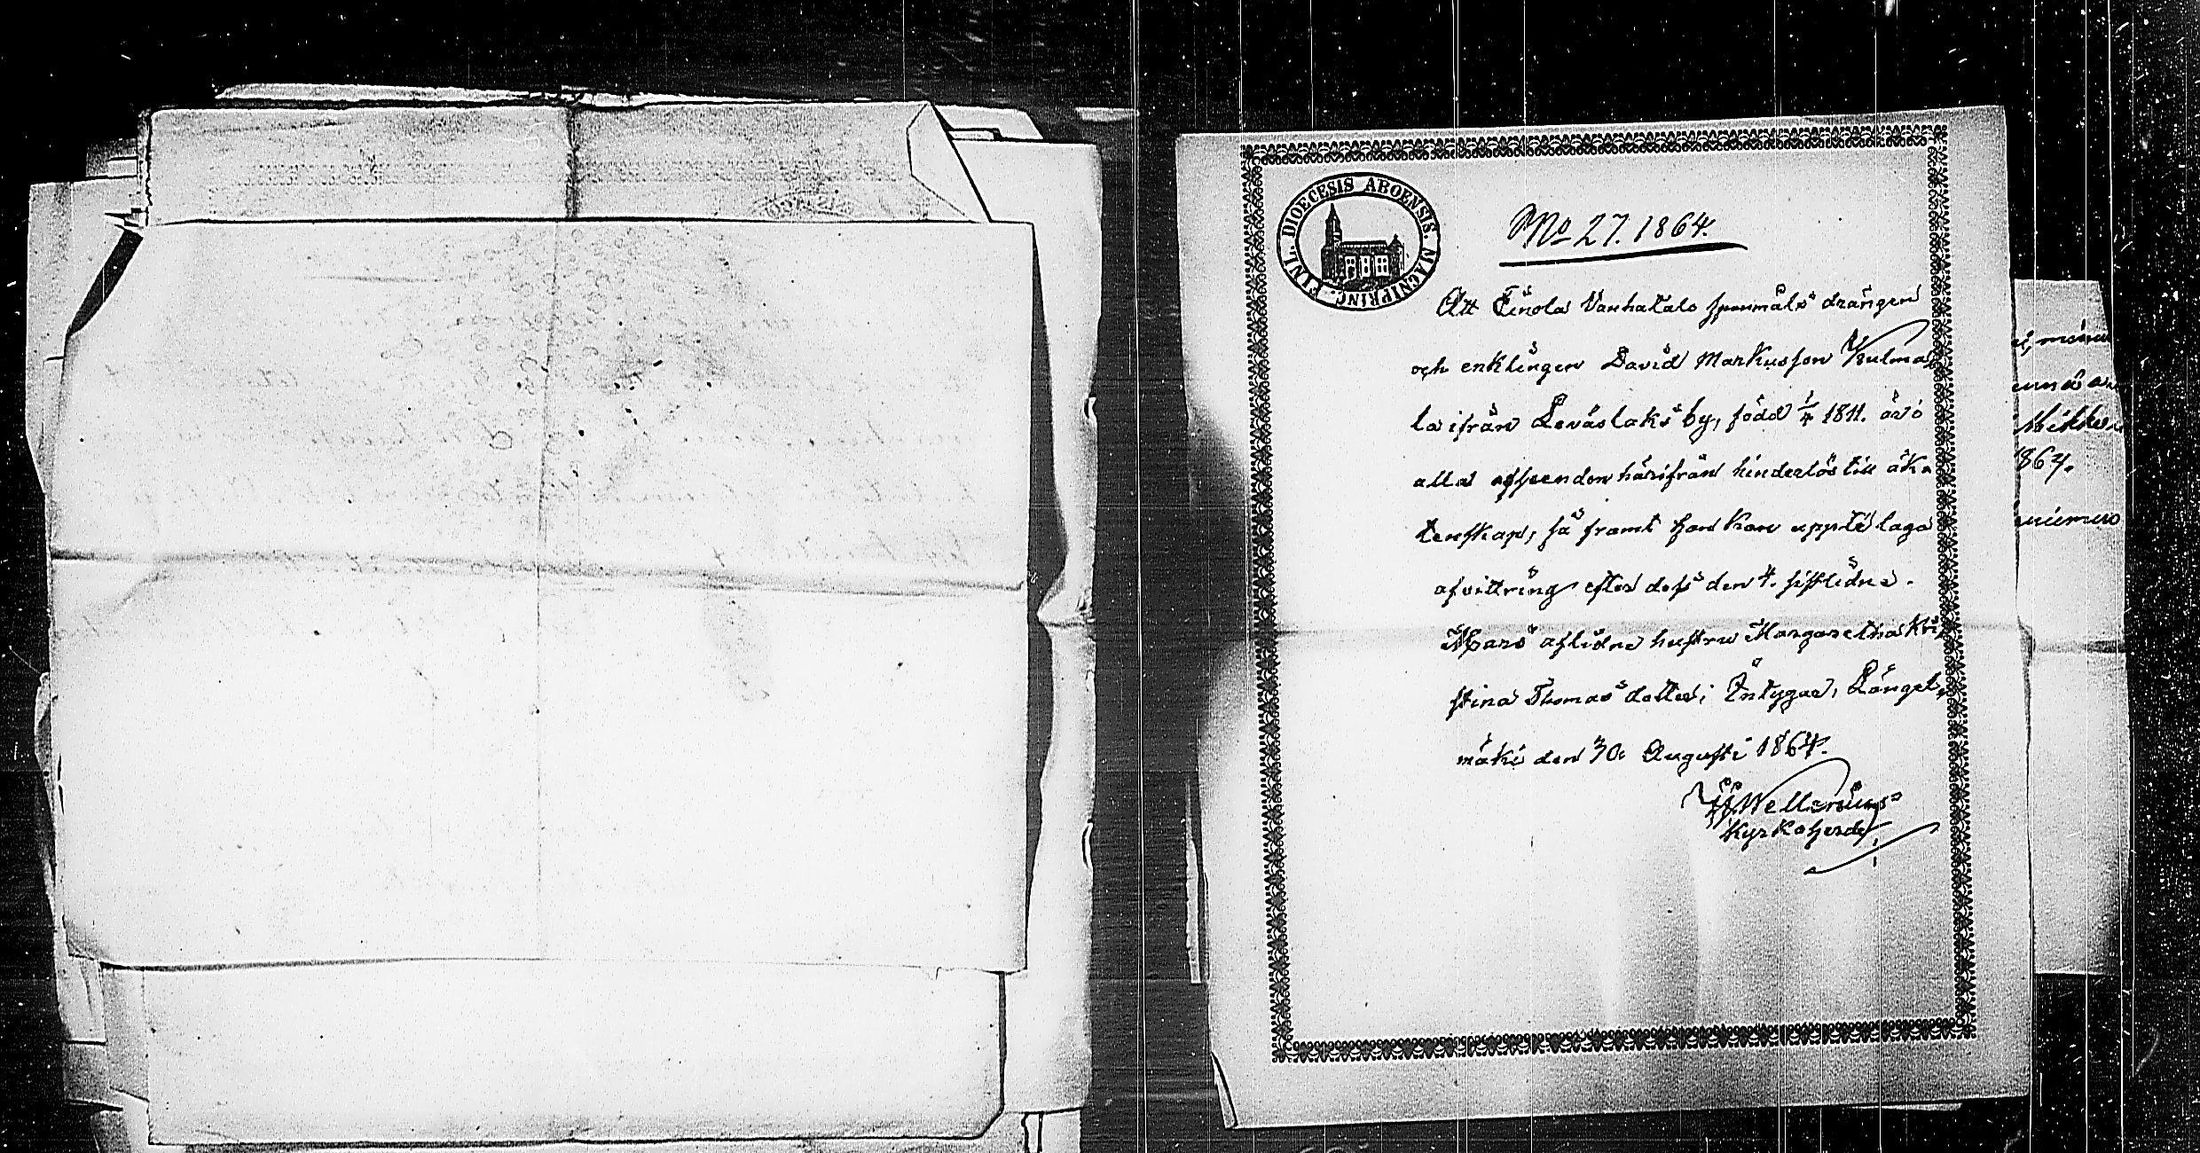 DIOECESIS ABOENSIS. MAGNIPRINC. FINL.
No 27. 1864.
Att Einola Vanhatalo spannmåls drängen
och enklingen David Markusson Kulma
la ifrån Leväslaks by, född 1/4 1811. är i
alla afseenden härifrån hinderlös till äk-
tenskap, så framt han kan uppte laga
afvittring efter dess den 4. sistlidne
Mars aflidne hustru Margaretha Kri
stina Thomas dotter; Intygar, Längel-
mäki den 30 Augusti 1864.
Wellenius
Kyrkoherde
864.